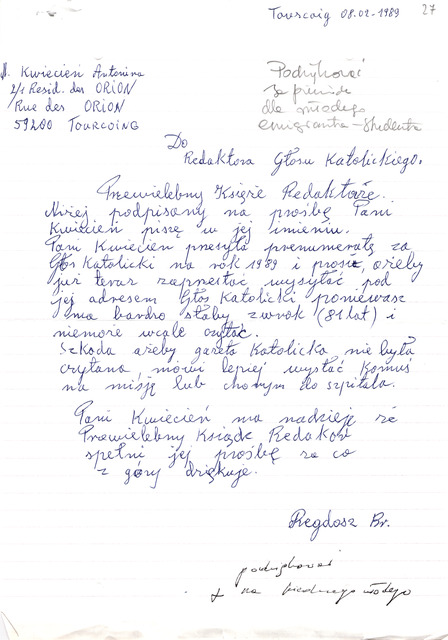 Tourcoig 08.02-1989 27
Kwiecień Antonina
2/1 Resid. des ORION
Rue des ORION
59200 TOURCOING
Podziękować
za pieniądze
dla młodego
emigranta-studenta
Do
Redaktora Głosu Katolickiego.
Przewielebny Księże Redaktorze.
Niżej podpisany na prośbę Pani
Kwiecień piszę w jej imieniu.
Pani Kwiecień przesyła prenumeratę za
Głos Katolicki na rok 1989 i prosi, ażeby
już teraz zaprzestać wysyłać pod
jej adresem Głos Katolicki ponieważ
ma bardzo słaby zwrok (81 lat) i
niemoże wcale czytać.
Szkoda ażeby gazeta Katolicka nie była
czytana mówi lepiej wysłać komuś
na misję lub chorym do szpitala.
Pani Kwiecień ma nadzieję że
Przewielebny Ksiądz Redaktor
spełni jej prośbę za co
z góry dziękuje.
Regdosz Br.
podziękować
+ na biednego młodego